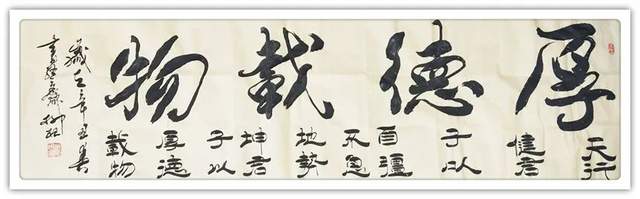 厚德載物
天行
健君
子以
自彊
不息
地勢
坤君
子以
厚德
載物
歲在辛丑